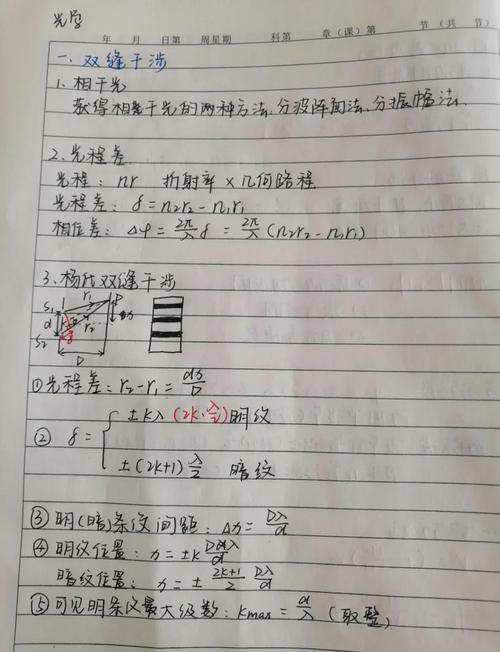 光学
年 月 日第 周星期 科第 章(课)第 节(共 节)
一、双缝干涉
1. 相干光
获得相干光的两种方法、分波阵面法、分振幅法.
2. 光程差
光程: nr 折射率 × 几何路程
光程差: δ = n₂r₂ - n₁r₁
相位差: Δφ = 2π/λ δ = 2π/λ (n₂r₂ - n₁r₁)
3. 杨氏双缝干涉
S₁ r₁ P
d r₂
S₂
D
① 光程差: r₂ - r₁ = dx/D
② δ = { ±kλ (2k·λ/2) 明纹
±(2k+1) λ/2 暗纹
③ 明(暗)条纹间距: Δx = Dλ/d
④ 明纹位置: x = ±k Dλ/d
暗纹位置: x = ± 2k+1/2 Dλ/d
⑤ 可见明条纹最大级数: kmax = d/λ (取整)